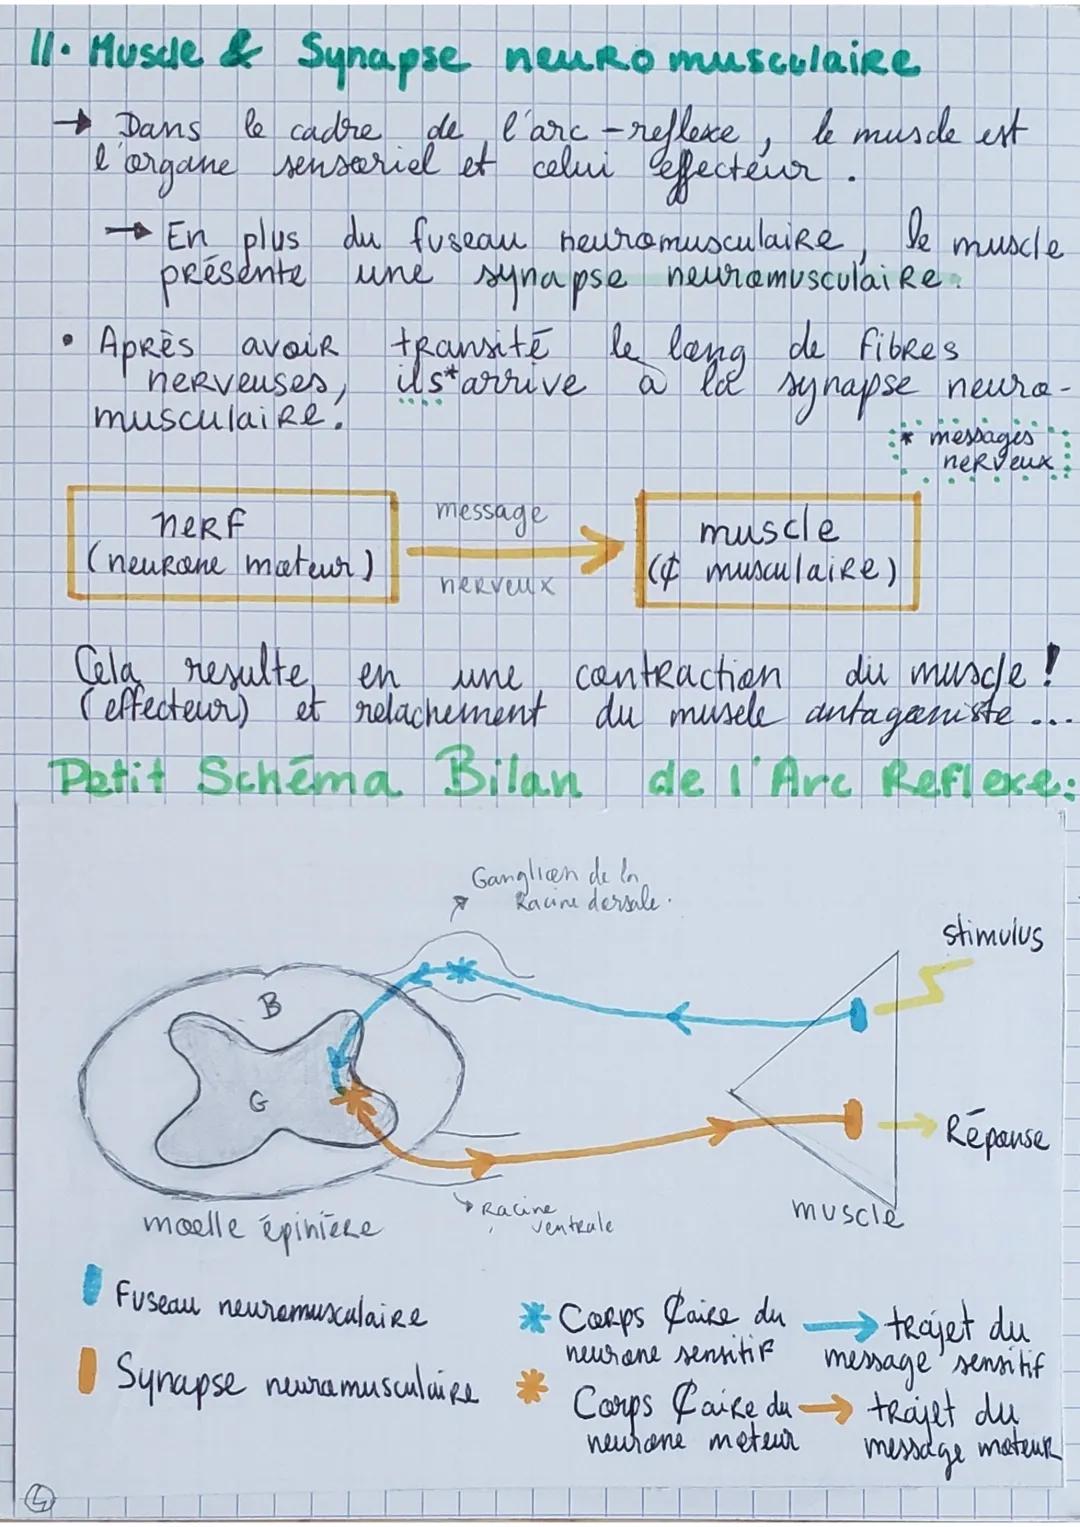 II. Muscle & Synapse neuromusculaire
→ Dans le cadre de l'arc-reflexe, le muscle est
l'organe sensoriel et celui effecteur.
→ En plus du fuseau neuromusculaire, le muscle
présente une synapse neuromusculaire.
• Après avoir transité le long de fibres
nerveuses, ils* arrive à la synapse neuro-
musculaire.
* messages
nerveux
nerf
(neurone moteur)
message
nerveux
muscle
(¢ musculaire)
Cela resulte en une contraction du muscle !
(effecteur) et relachement du muscle antagoniste ...
Petit Schéma Bilan de l'Arc Reflexe:
Ganglion de la
Racine dorsale.
stimulus
B
G
Réponse
Racine
ventrale
moelle épinière
muscle
Fuseau neuromusculaire
Synapse neuromusculaire
Corps ¢aire du
neurone sensitif
Corps ¢aire du
neurone moteur
→ trajet du
message sensitif
→ trajet du
message moteur
4